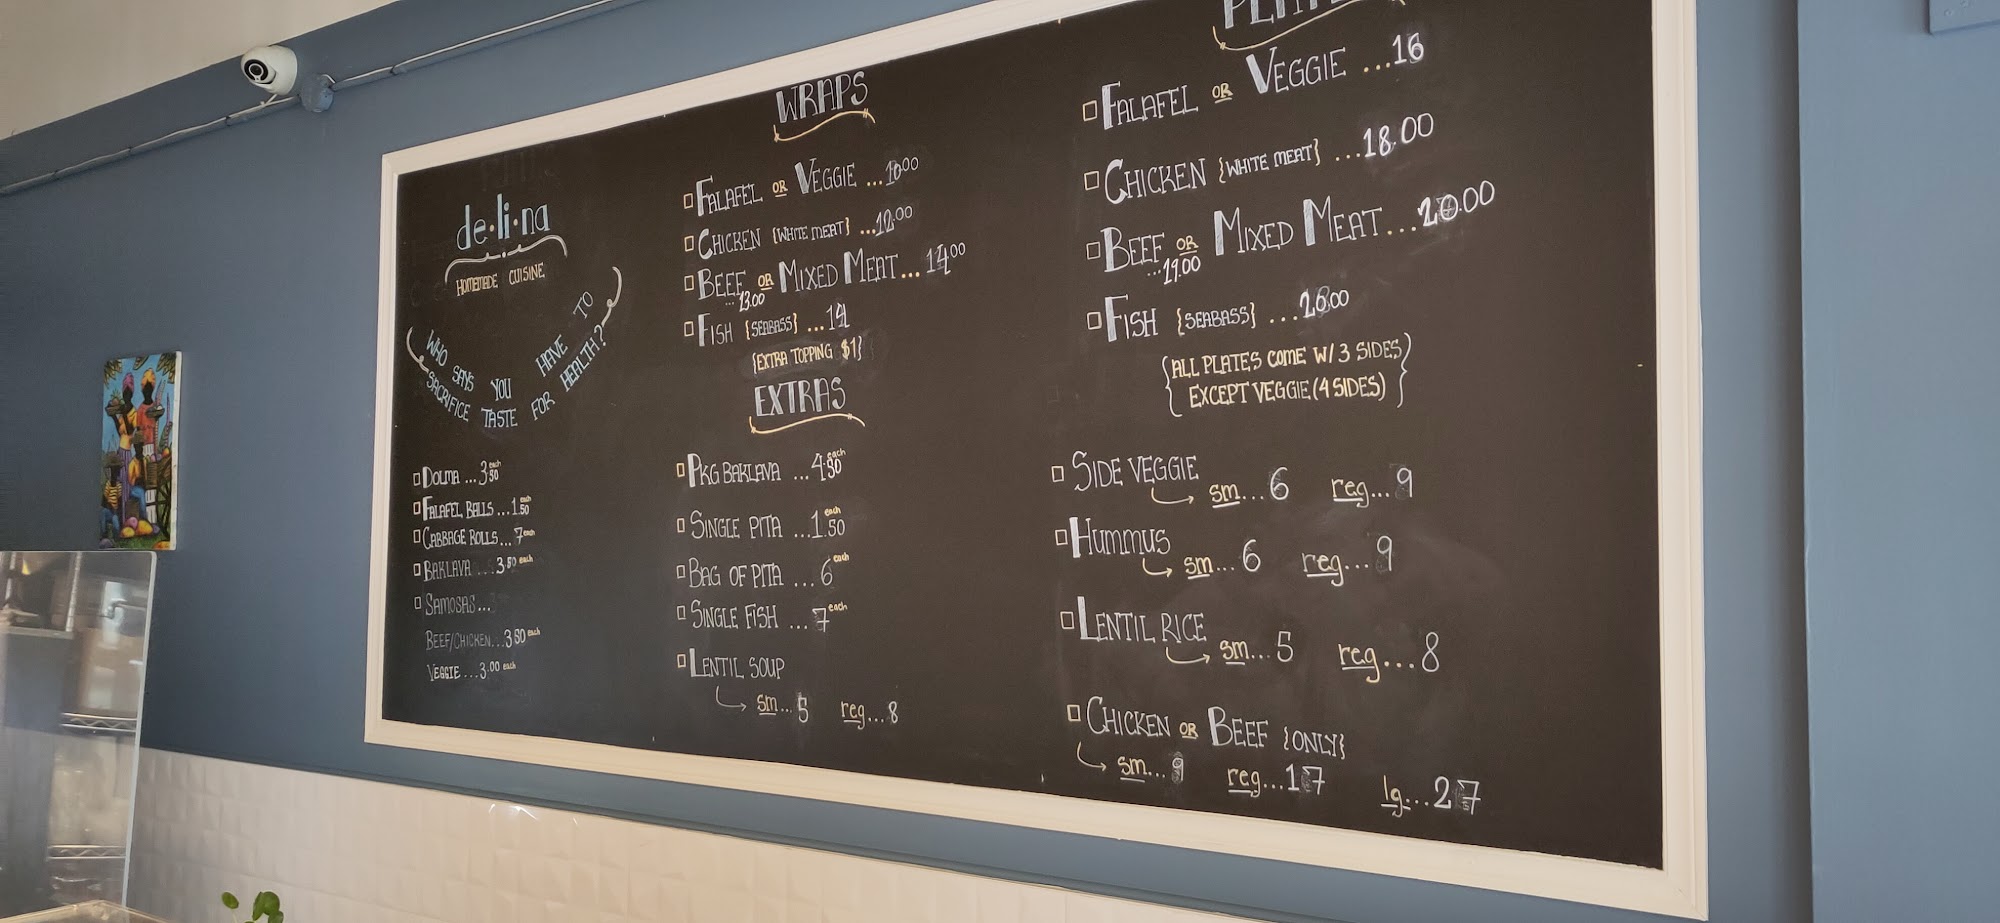 de·li·na
HOMEMADE CUISINE
WHO SAYS YOU HAVE TO
SACRIFICE TASTE FOR HEALTH?
DOLMA ...3.50 each
FALAFEL BALLS ...1.50 each
CABBAGE ROLLS ...7 each
BAKLAVA ...3.50 each
SAMOSAS...
BEEF/CHICKEN...3.50 each
VEGGIE ...3.00 each
WRAPS
FALAFEL OR VEGGIE ...10.00
CHICKEN {WHITE MEAT} ...12.00
BEEF OR MIXED MEAT...14.00
...13.00
FISH {SEABASS} ...14
{EXTRA TOPPING $1}
EXTRAS
PKG BAKLAVA ...4.50 each
SINGLE PITA ...1.50 each
BAG OF PITA ...6 each
SINGLE FISH ...7 each
LENTIL SOUP
sm...5 reg...8
FALAFEL OR VEGGIE ...16
CHICKEN {WHITE MEAT} ...18.00
BEEF OR MIXED MEAT...20.00
...19.00
FISH {SEABASS} ...20.00
{ALL PLATES COME W/ 3 SIDES
EXCEPT VEGGIE (4 SIDES)}
SIDE VEGGIE
sm...6 reg...9
HUMMUS
sm...6 reg...9
LENTIL RICE
sm...5 reg...8
CHICKEN OR BEEF {ONLY}
sm...9 reg...17 lg...27